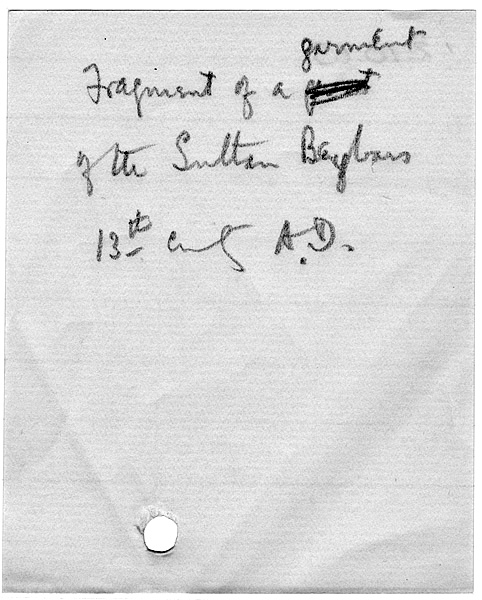 garment
Fragment of a
of the Sultan Baybars
13th cent A.D.